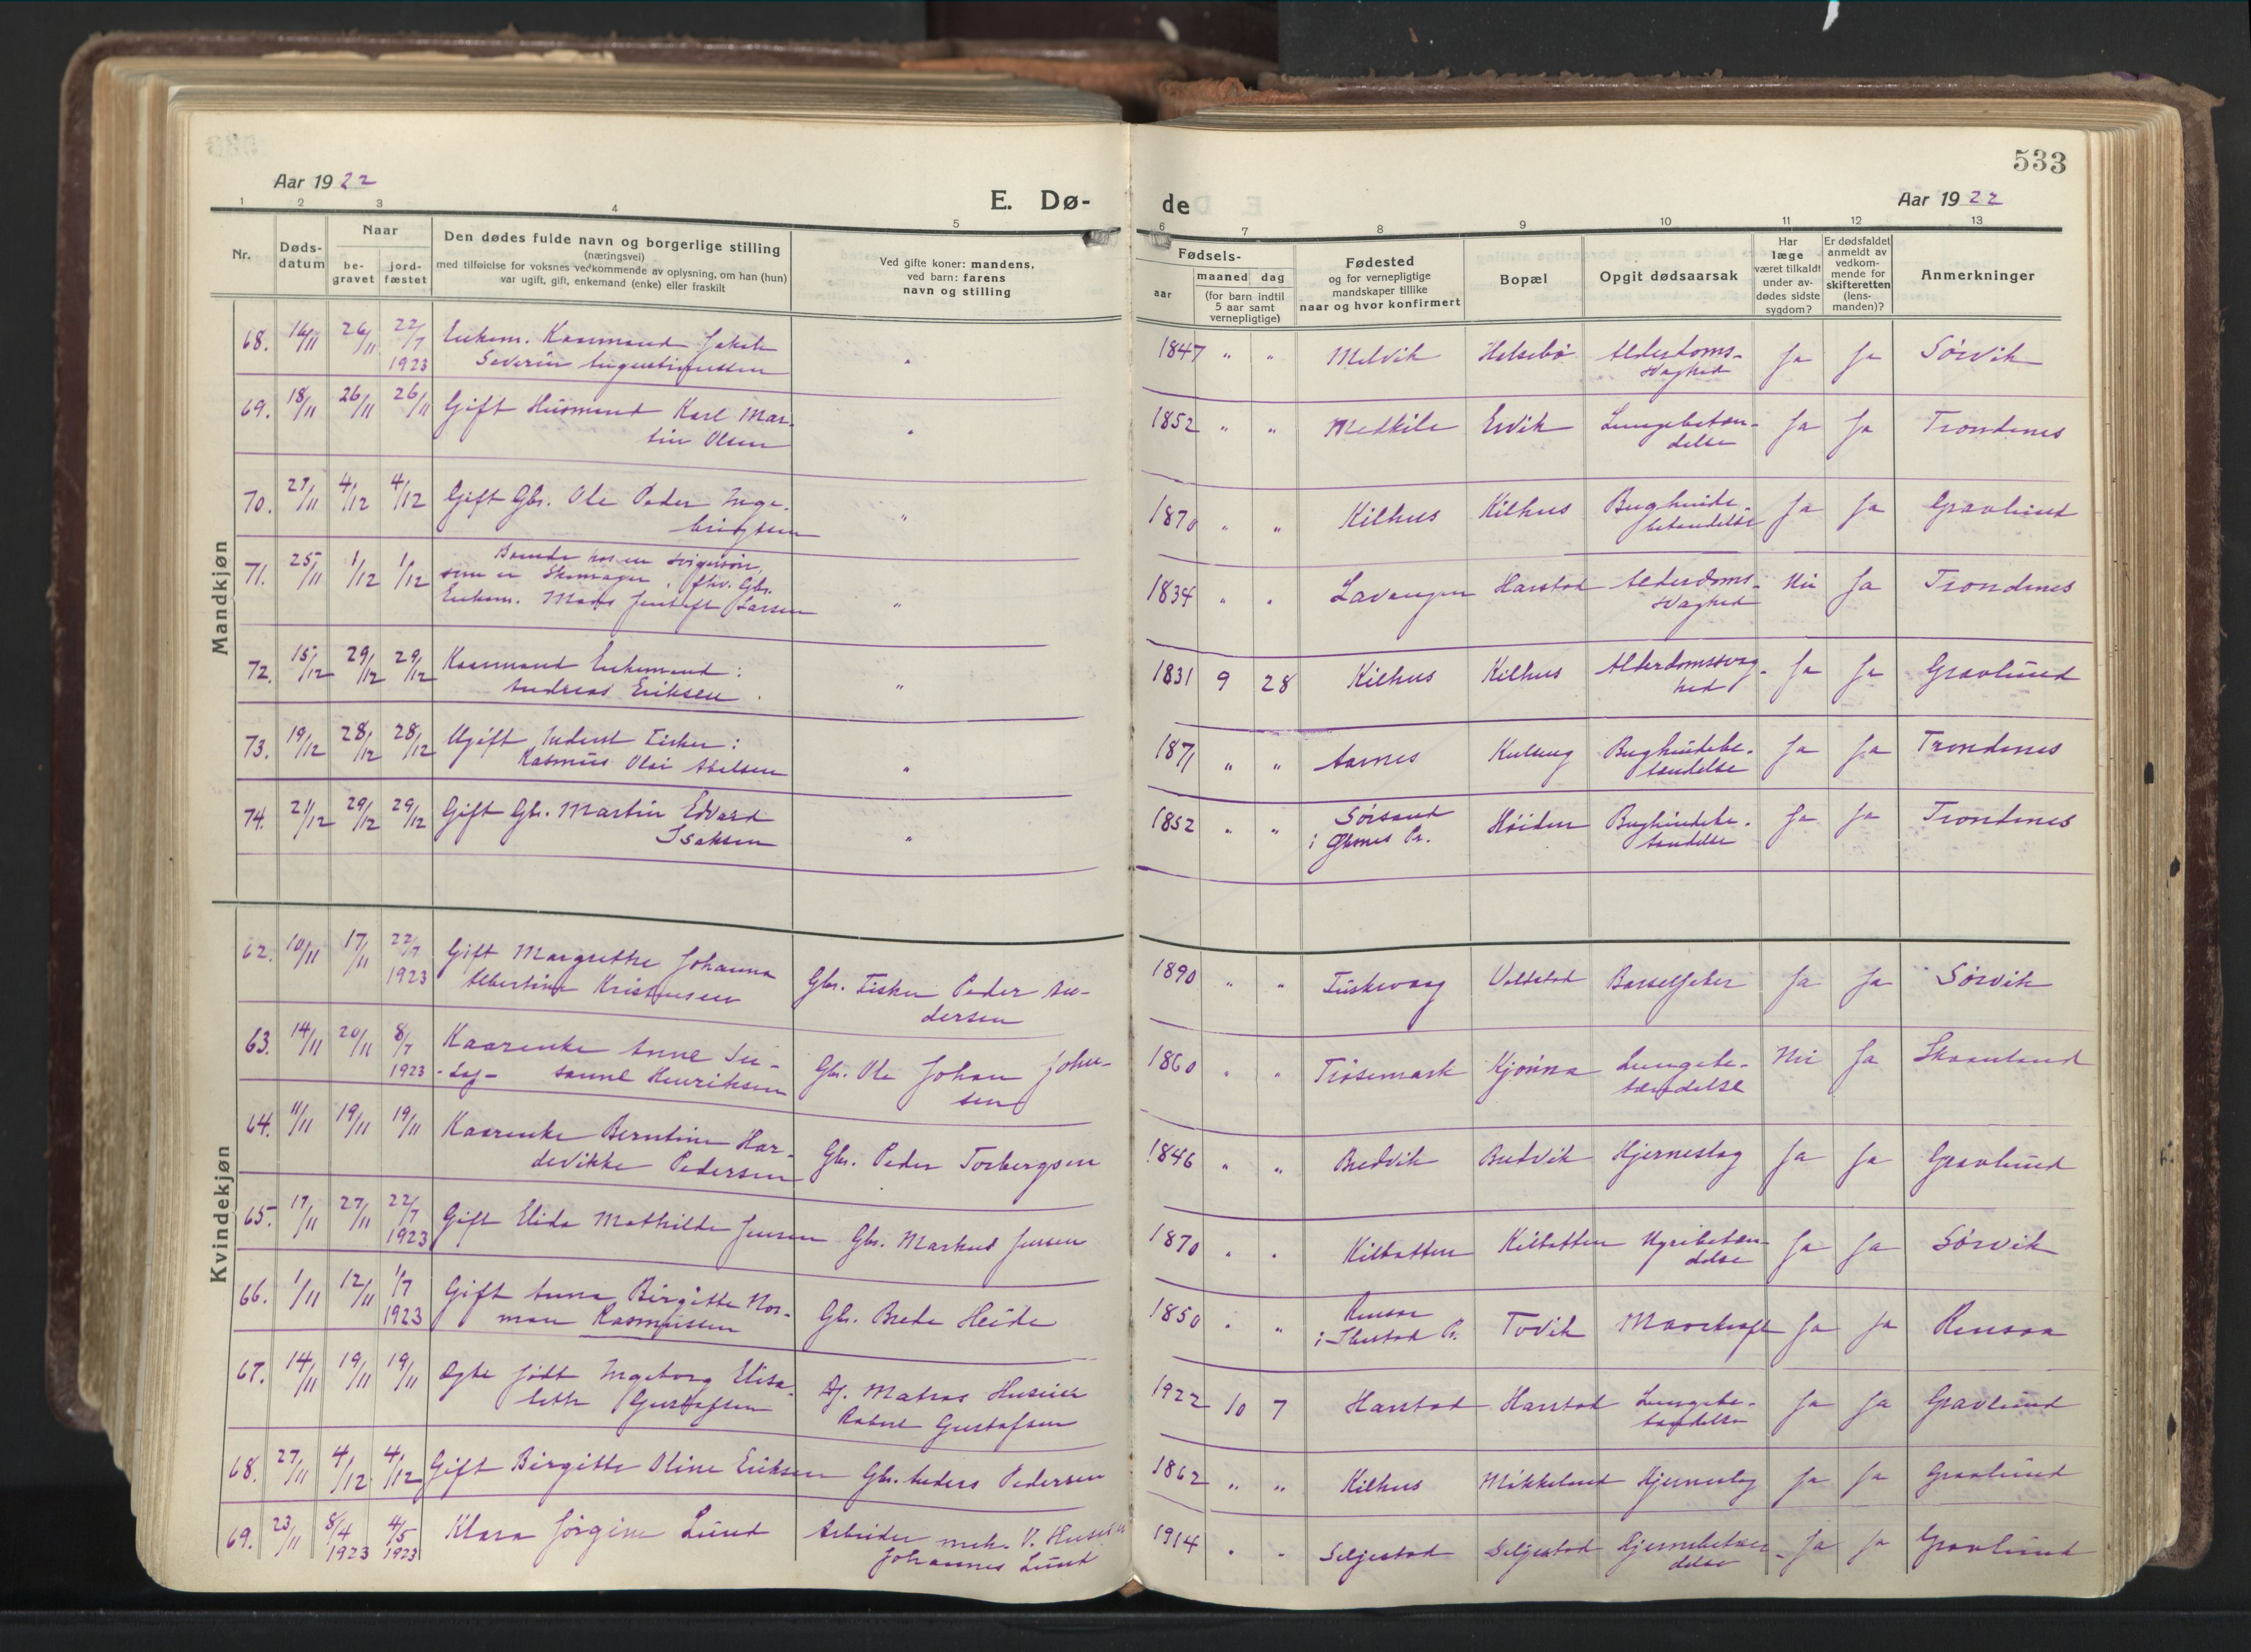 533
Aar 1922
E. Dø-
de
Aar 1922
1 2 3 4 5 6 7 8 9 10 11 12 13
Nr.
Døds-
datum
Naar
be-
gravet
jord-
fæstet
Den dødes fulde navn og borgerlige stilling
(næringsvei)
med tilføielse for voksnes vedkommende av oplysning, om han (hun)
var ugift, gift, enkemand (enke) eller fraskilt
Ved gifte koner: mandens,
ved barn: farens
navn og stilling
Fødsels-
aar
maaned dag
(for barn indtil
5 aar samt
vernepligtige)
Fødested
og for vernepligtige
mandskaper tillike
naar og hvor konfirmert
Bopæl
Opgit dødsaarsak
Har
læge
været tilkaldt
under av-
dødes sidste
sygdom?
Er dødsfaldet
anmeldt av
vedkom-
mende for
skifteretten
(lens-
manden)?
Anmerkninger
Mandkjøn
68. 16/11 26/11 22/7 1923 Enkem. Kaarmand Jakob
Severin Augustinussen " 1847 " " Melvik Helsebø Alderdoms-
svaghed Ja Ja Sørvik
69. 18/11 26/11 26/11 Gift Husmand Karl Mar-
tin Olsen " 1852 " " Medkile Ervik Lungebetæn-
delse Ja Ja Trondenes
70. 27/11 4/12 4/12 Gift Gbr. Ole Peder Inge-
brigtsen " 1870 " " Kilhus Kilhus Bughinde-
betændelse Ja Ja Gravlund
71. 25/11 1/12 1/12 Boende hos en svigersøn,
som er Skomager, fhv. Gbr.
Enkem. Mons Jentoft Larsen " 1834 " " Lavangen Harstad Alderdoms-
svaghed Nei Ja Trondenes
72. 15/12 29/12 29/12 Kaarmand Enkemand:
Andreas Eriksen. " 1831 9 28 Kilhus Kilhus Alderdomssvag-
hed Ja Ja Gravlund
73. 19/12 28/12 28/12 Ugift Inderst Fisker:
Rasmus Olai Abelsen " 1871 " " Aarnes Kulseng Bughindebe-
tændelse Ja Ja Trondenes
74. 21/12 29/12 29/12 Gift Gbr. Martin Edvard
Isaksen " 1852 " " Sørsand
i Øksnes Pr. Høiden Bughindebe-
tændelse Ja Ja Trondenes
Kvindekjøn
62. 10/11 17/11 22/7 1923 Gift Margrethe Johanna
Albertine Kristensen Gbr. Fisker Peder An-
dersen 1890 " " Fuskevaag Voldstad Barselfeber Ja Ja Sørvik
63. 14/11 20/11 8/7 1923 Kaarenke Anne Su-
sanne Henriksen Gbr. Ole Johan John-
sen 1860 " " Trøsemark Kjønna Lungebe-
tændelse Nei Ja Skaanland
64. 11/11 19/11 19/11 Kaarenke Berntine Har-
devikke Pedersen Gbr. Peder Torbergsen 1846 " " Bredvik Bredvik Hjerneslag Ja Ja Gravlund
65. 17/11 27/11 22/7 1923 Gift Elida Mathilde Jensen Gbr. Markus Jensen 1870 " " Kilbotten Kilbotten Nyrebetæn-
delse Ja Ja Sørvik
66. 1/11 12/11 1/7 1923 Gift Anna Birgitte Nor-
man Rasmussen Gbr. Brede Heide 1850 " " Rensaa
i Ibestad Pr. Tovik Mavekræft Ja Ja Rensaa
67. 14/11 19/11 19/11 Ægte født Ingeborg Elisa-
beth Gustafsen Af. Matros Huseier
Robert Gustafsen 1922 10 7 Harstad Harstad Lungebe-
tændelse Ja Ja Gravlund
68. 27/11 4/12 4/12 Gift Birgitte Oline Eriksen Gbr. Anders Pedersen 1862 " " Kilhus Mikkelund Hjerneslag Ja Ja Gravlund
69. 23/11 8/4 1923 4/5 1923 Klara Jørgine Lund Arbeider mek. V. Huseier
Johannes Lund 1914 " " Seljestad Seljestad Hjernebetæn-
delse Ja Ja Gravlund